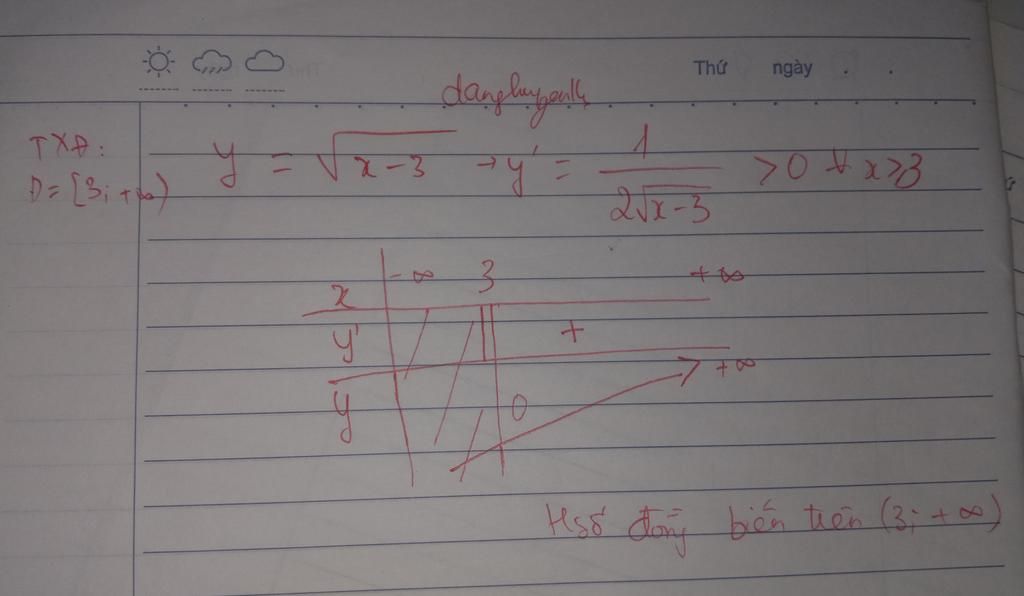 Thứ ngày . .
danghuyenlk
TXĐ:
D = [3; +∞)
y = √(x-3) → y' = 1/(2√(x-3)) > 0 ∀ x>3
x -∞ 3 +∞
y' +
y 0 +∞
Hsố đồng biến trên (3; +∞)